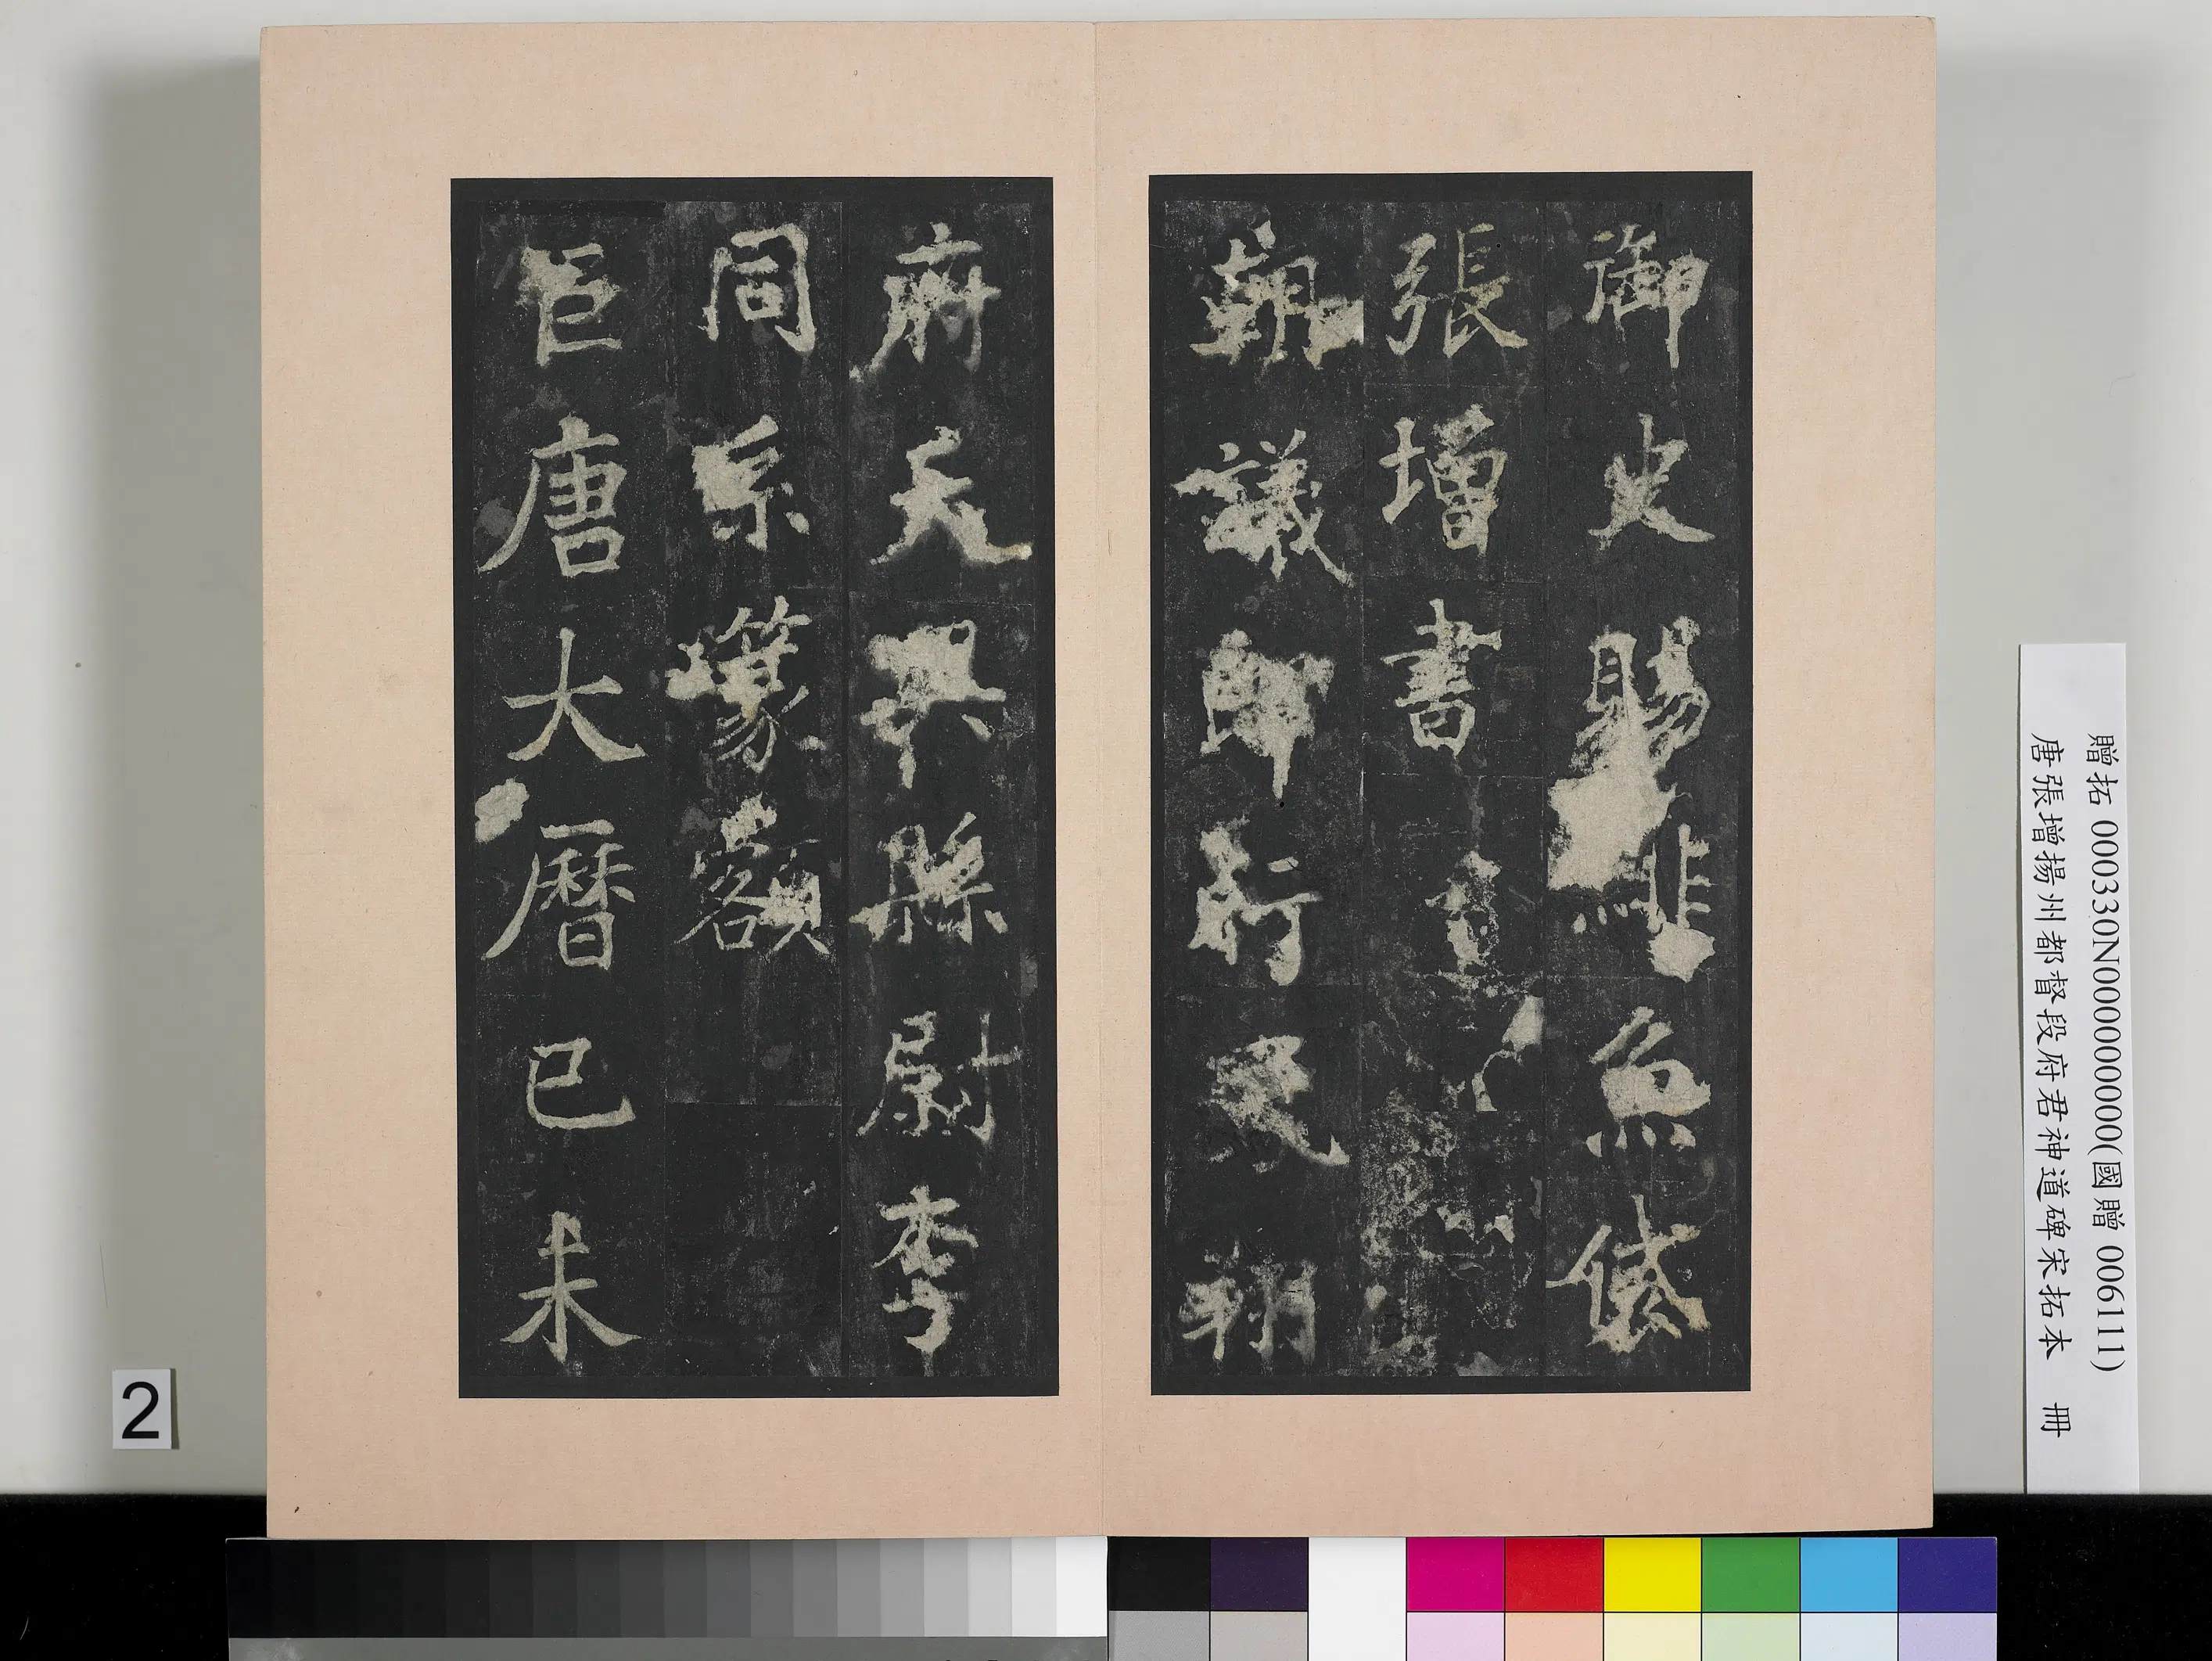 御史賜緋魚袋
張增書
朝議郎行
朔
府天興縣尉李
同系篆額
巨唐大曆己未
贈拓 000330N000000000(國贈 006111)
唐張增揚州都督段府君神道碑宋拓本 冊
2